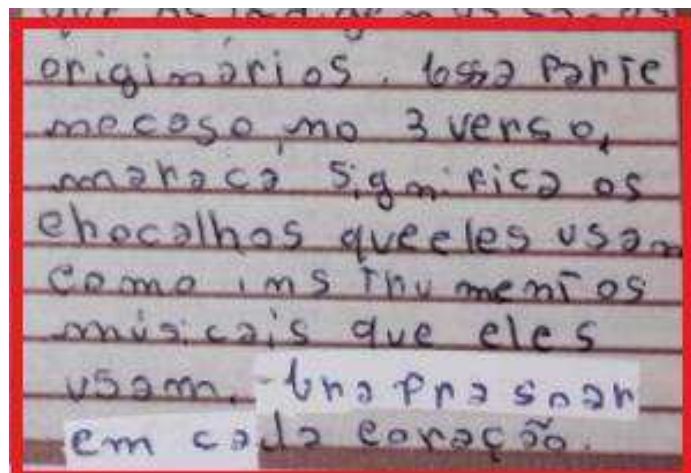 originários. Essa parte
mecaso, no 3 verso,
maracá significa os
chocalhos que eles usam
como instrumentos
músicais que eles
usam. Era pra soar
em cada coração.